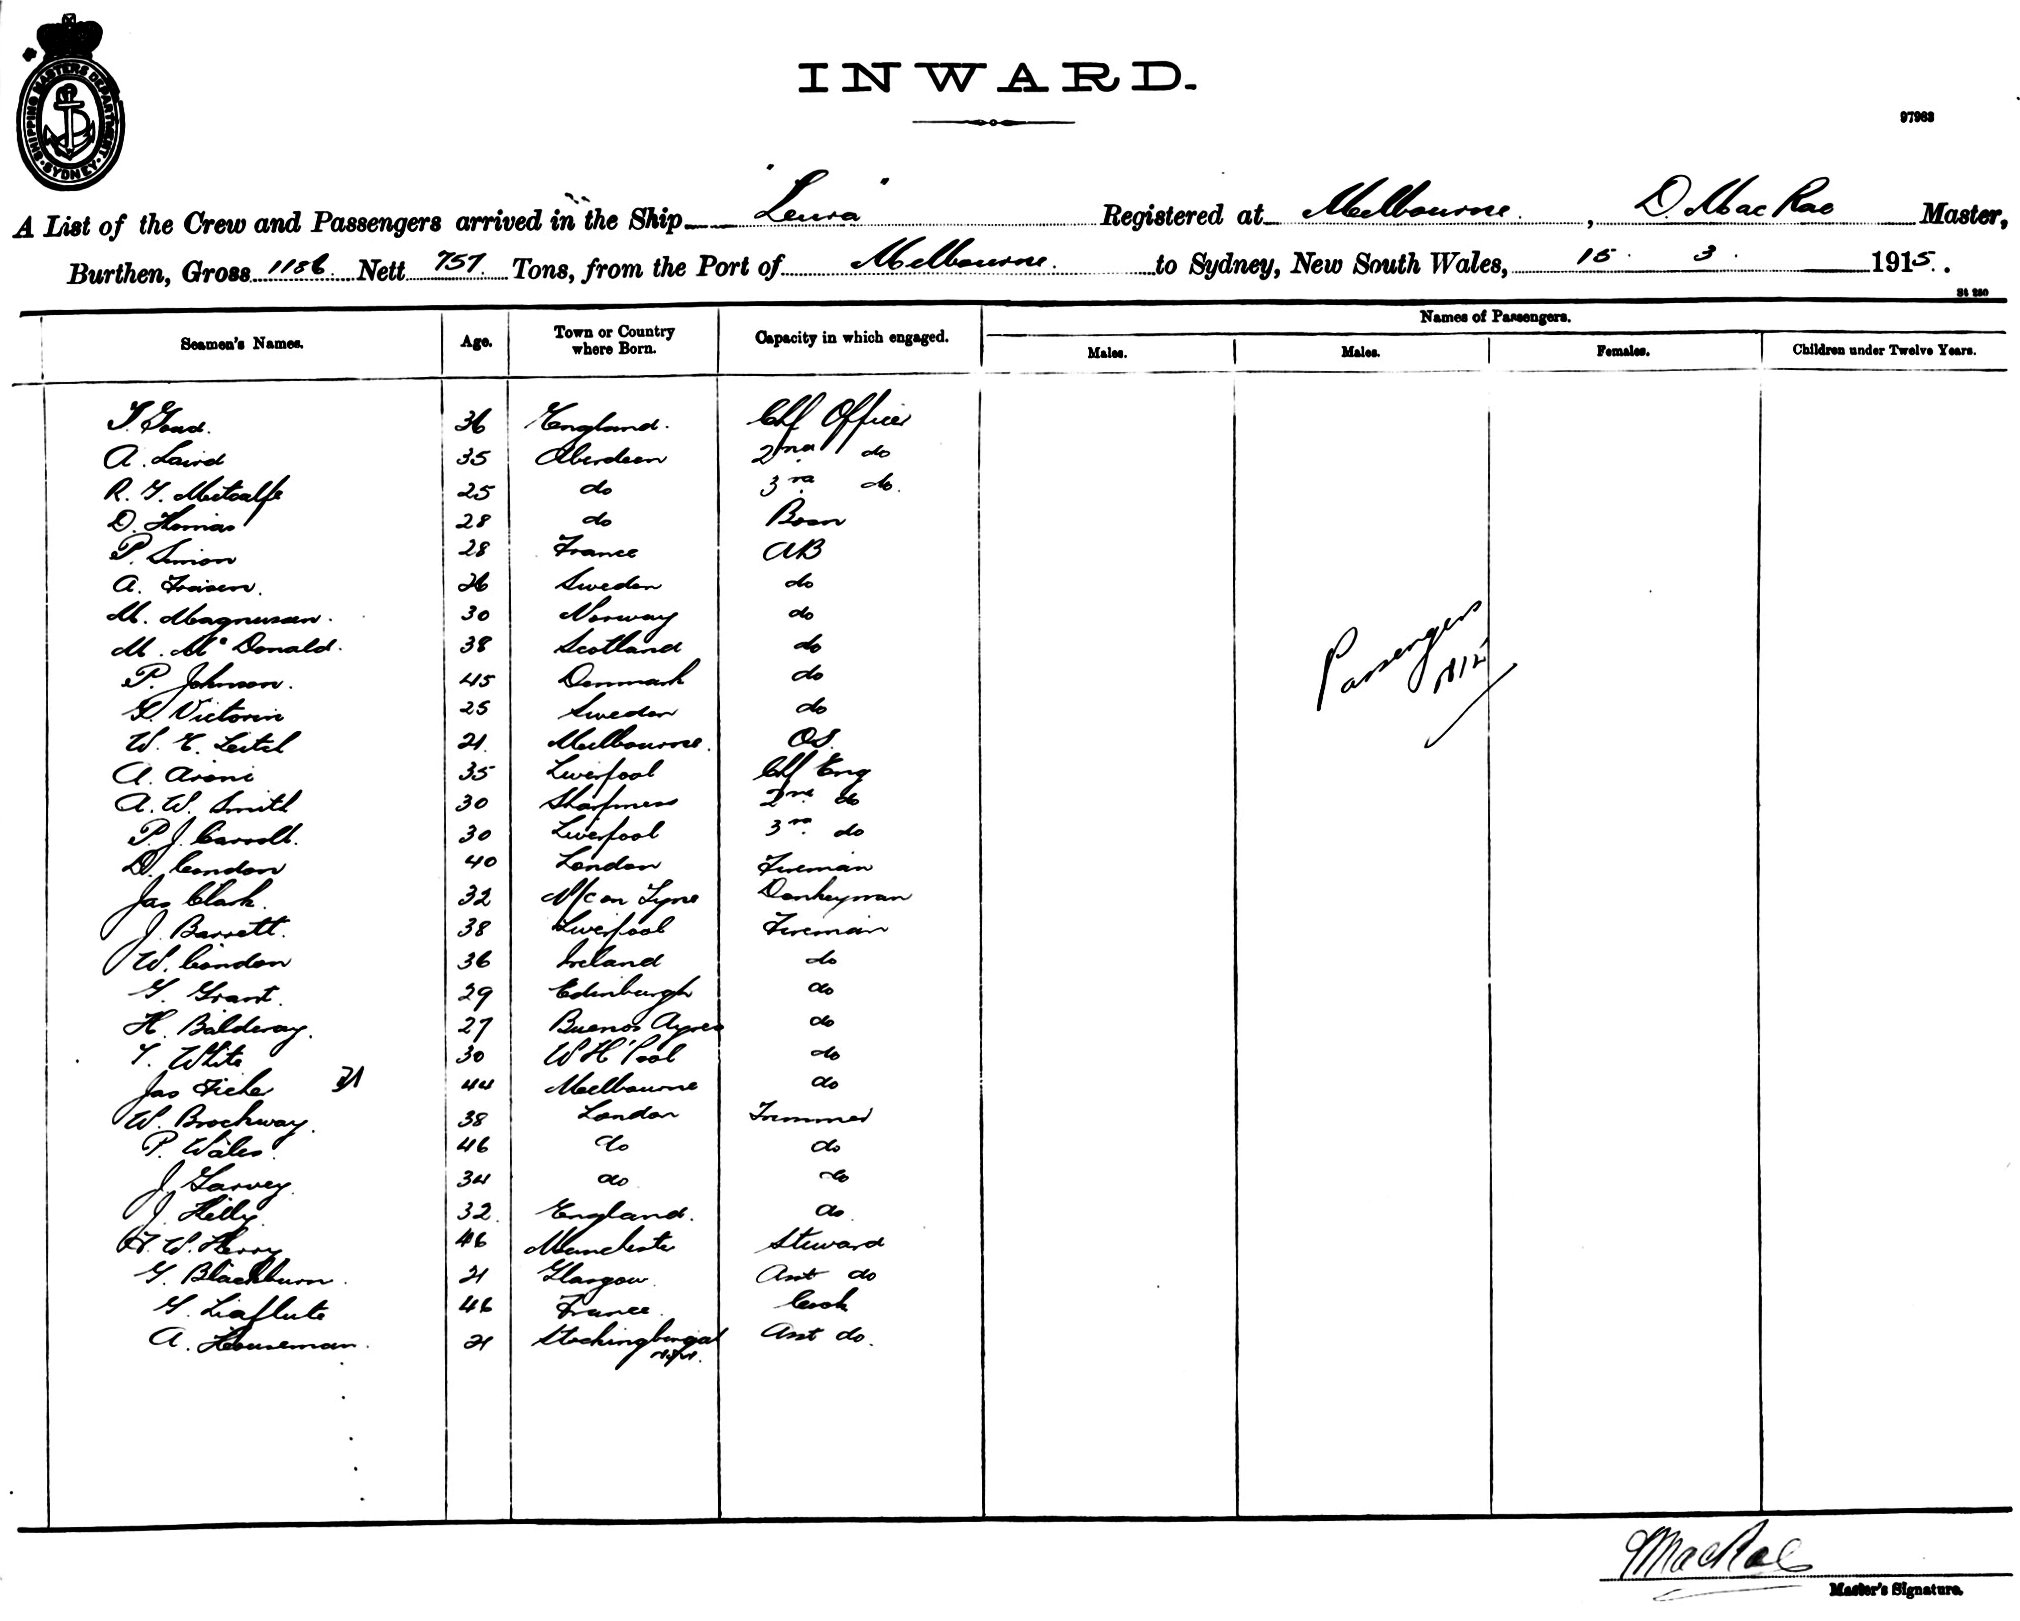 SHIPPING MASTERS DEPARTMENT. SYDNEY.
INWARD.
97963
A List of the Crew and Passengers arrived in the Ship "Leura" Registered at Melbourne, D. MacRae Master,
Burthen, Gross 1186 Nett 757 Tons, from the Port of Melbourne. to Sydney, New South Wales, 15 . 3 . 1915.
St 230
Seamen's Names. Age. Town or Country where Born. Capacity in which engaged. Names of Passengers.
Males. Males. Females. Children under Twelve Years.
36 England. Chf Officer
A. Laird 35 Aberdeen 2nd do
R. G. Metcalfe 25 do 3rd do.
D. Thomas 28 do Bosn
P. Simon 28 France AB
A. 26 Sweden do
M. Magnusen. 30 Norway do
M. McDonald. 38 Scotland do
P. Johnson. 45 Denmark do
G. Victorin 25 Sweden do
W. E. Leitch 21. Melbourne. OS.
A. Aroni 35 Liverpool Chf Eng
A. W. Smith 30 Sharpness 2nd do
P. J. Carroll. 30 Liverpool 3rd do
D. Condon 40 London Fireman
Jas Clark. 32 N/c on Tyne Donkeyman
J. Barrett. 38 Liverpool Fireman
W. Condon 36 Ireland do
G. Grant. 29 Edinburgh do
H. Balderay. 27 Buenos Ayres do
T. White 30 W H'Pool do
Jas 44 Melbourne do
W. Brockway. 38 London Trimmer
P. Wales. 46 do do
J. Garvey. 34 do do
J. Kelly. 32. England. do.
H. W. Henry 46 Manchester Steward
G. Blackburn. 21 Glasgow. Asst do
G. 46 France. Cook
A. Houseman. 21 Asst do.
Passengers
Nil
MacRae
Master's Signature.